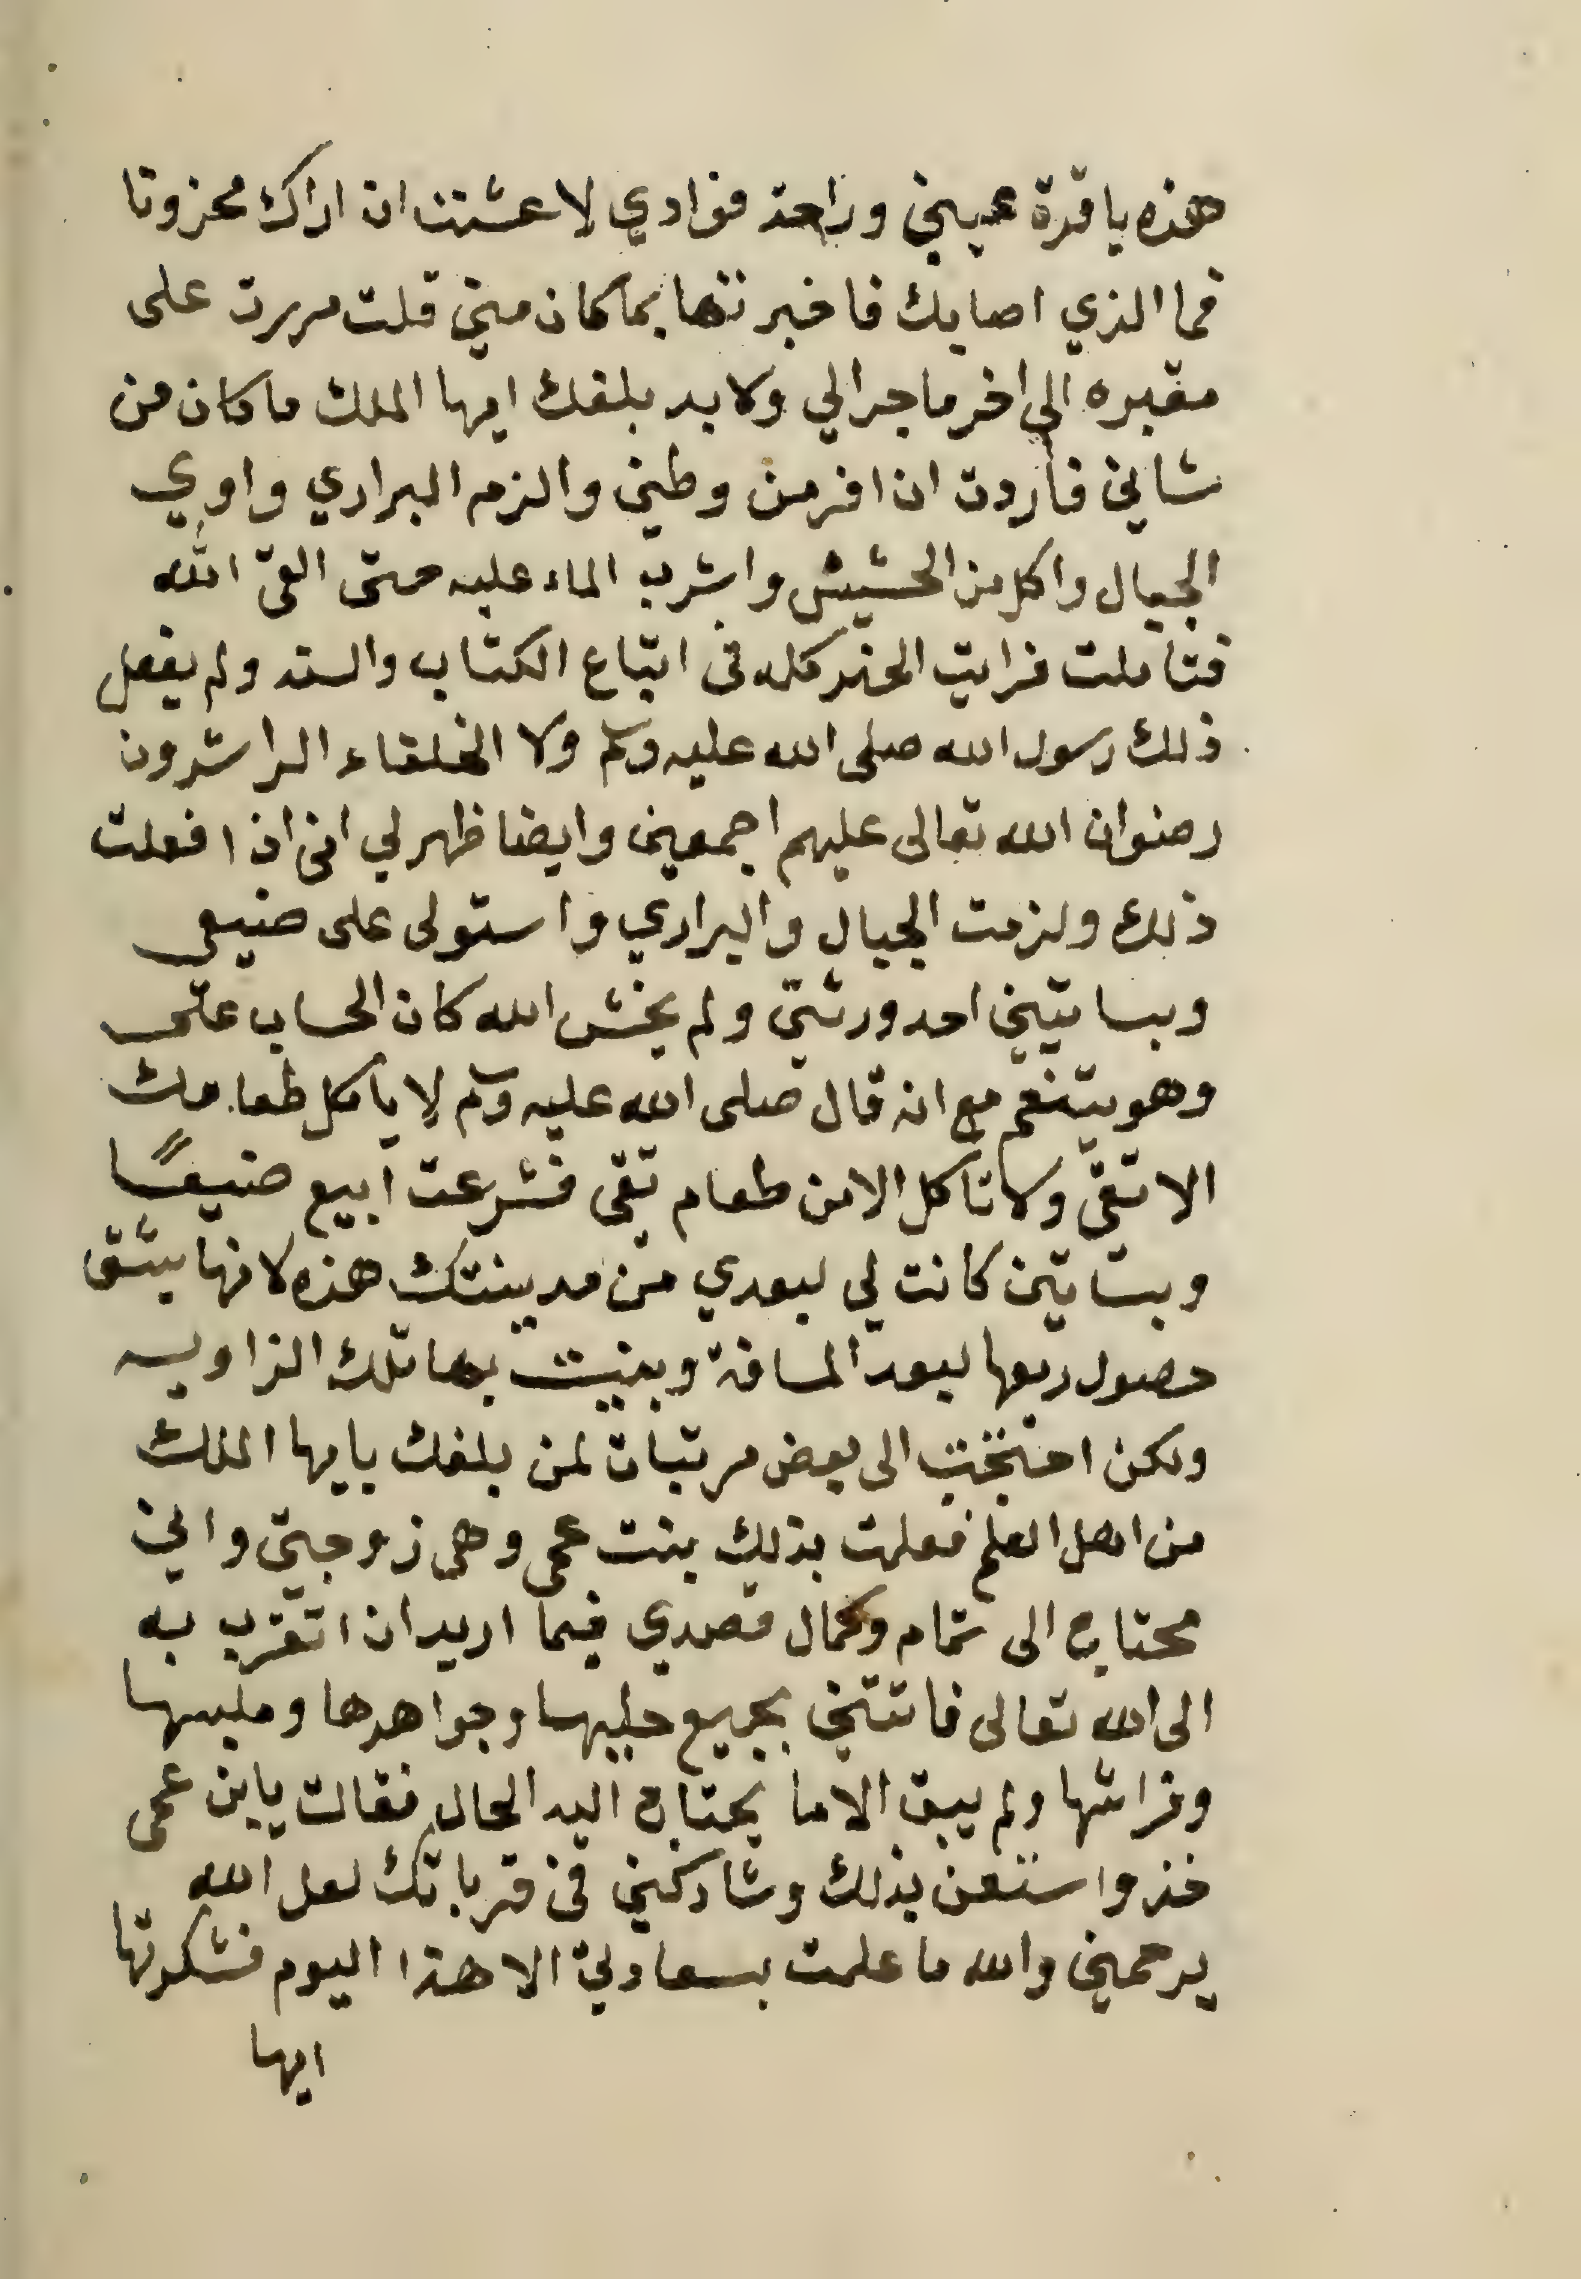 هذه يا قرة عيني وراحة فوادي لا عشت ان اراك محزونا
فما الذي اصابك فاخبرتها بما كان مني قلت مررت على
مقبره الي اخر ما جرالي ولا بد بلغك ايها الملك ما كان من
شاني فأردت ان افر من وطني والزم البراري واوي
الجبال واكل من الحشيش واشرب الماء عليه حتى القى الله
فتأملت فرايت الخير كله في اتباع الكتاب والسنه ولم يفعل
ذلك رسول الله صلى الله عليه وسلم ولا الخلفاء الراشدون
رضوان الله تعالى عليهم اجمعين وايضا ظهر لي اني اذا فعلت
ذلك ولزمت الجبال والبراري واستولى على ضيعي
وبساتيني احد ورثتي ولم يخش الله كان الحساب علي
وهو يتنعم مع انه قال صلى الله عليه وسلم لا يأكل طعامك
الا تقي ولا تاكل الا من طعام تقي فشرعت ابيع ضيعًا
وبساتين كانت لي لبعدي من مدينتك هذه لانها يشق
حصول ريعها لبعد المسافة وبنيت بها تلك الزاويه
ولكن احتجت الى بعض مرتبات لمن بلغك يايها الملك
من اهل العلم فعلمت بذلك بنت عمي وهي زوجتي واني
محتاج الى تمام وكمال قصدي فيما اريد ان اتقرب به
الى الله تعالى فاتتني بجميع حليها وجواهرها وملبسها
وفراشها ولم يبق الا ما يحتاج اليه الحال فقالت يابن عمي
خذ واستعن بذلك وشاركني في قرباتك لعل الله
يرحمني والله ما علمت بسعادتي الا هذا اليوم فشكرتها
ايها